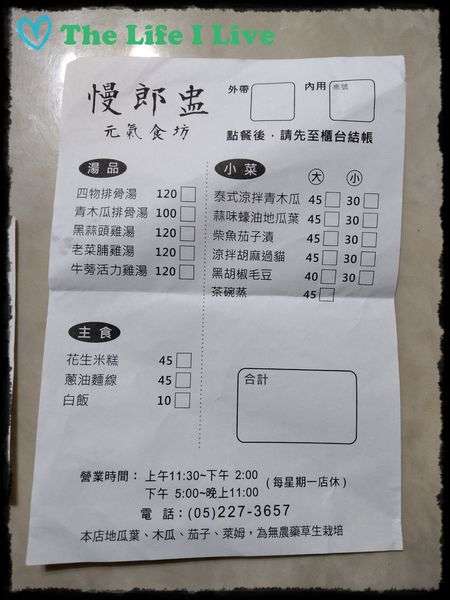 The Life I Live
慢郎盅
元氣食坊
外帶 內用 桌號
點餐後，請先至櫃台結帳
湯品
四物排骨湯 120
青木瓜排骨湯 100
黑蒜頭雞湯 120
老菜脯雞湯 120
牛蒡活力雞湯 120
小菜 大 小
泰式涼拌青木瓜 45 30
蒜味蠔油地瓜葉 45 30
柴魚茄子漬 45 30
涼拌胡麻過貓 45 30
黑胡椒毛豆 40 30
茶碗蒸 45
主食
花生米糕 45
蔥油麵線 45
白飯 10
合計
營業時間：上午11:30~下午 2:00
下午 5:00~晚上11:00 (每星期一店休)
電 話：(05)227-3657
本店地瓜葉、木瓜、茄子、萊姆，為無農藥草生栽培